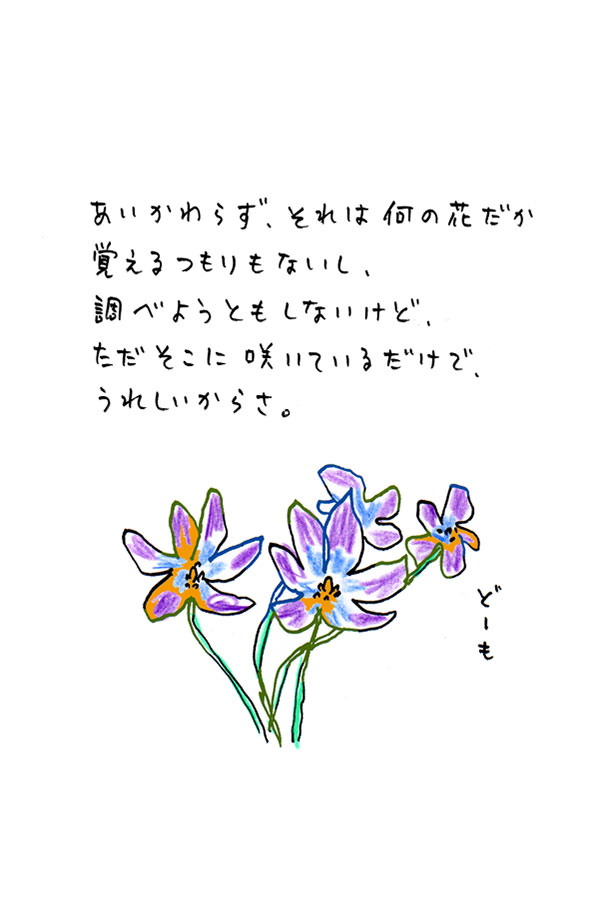 あいかわらず、それは何の花だか
覚えるつもりもないし、
調べようともしないけど、
ただそこに咲いているだけで、
うれしいからさ。
どーも